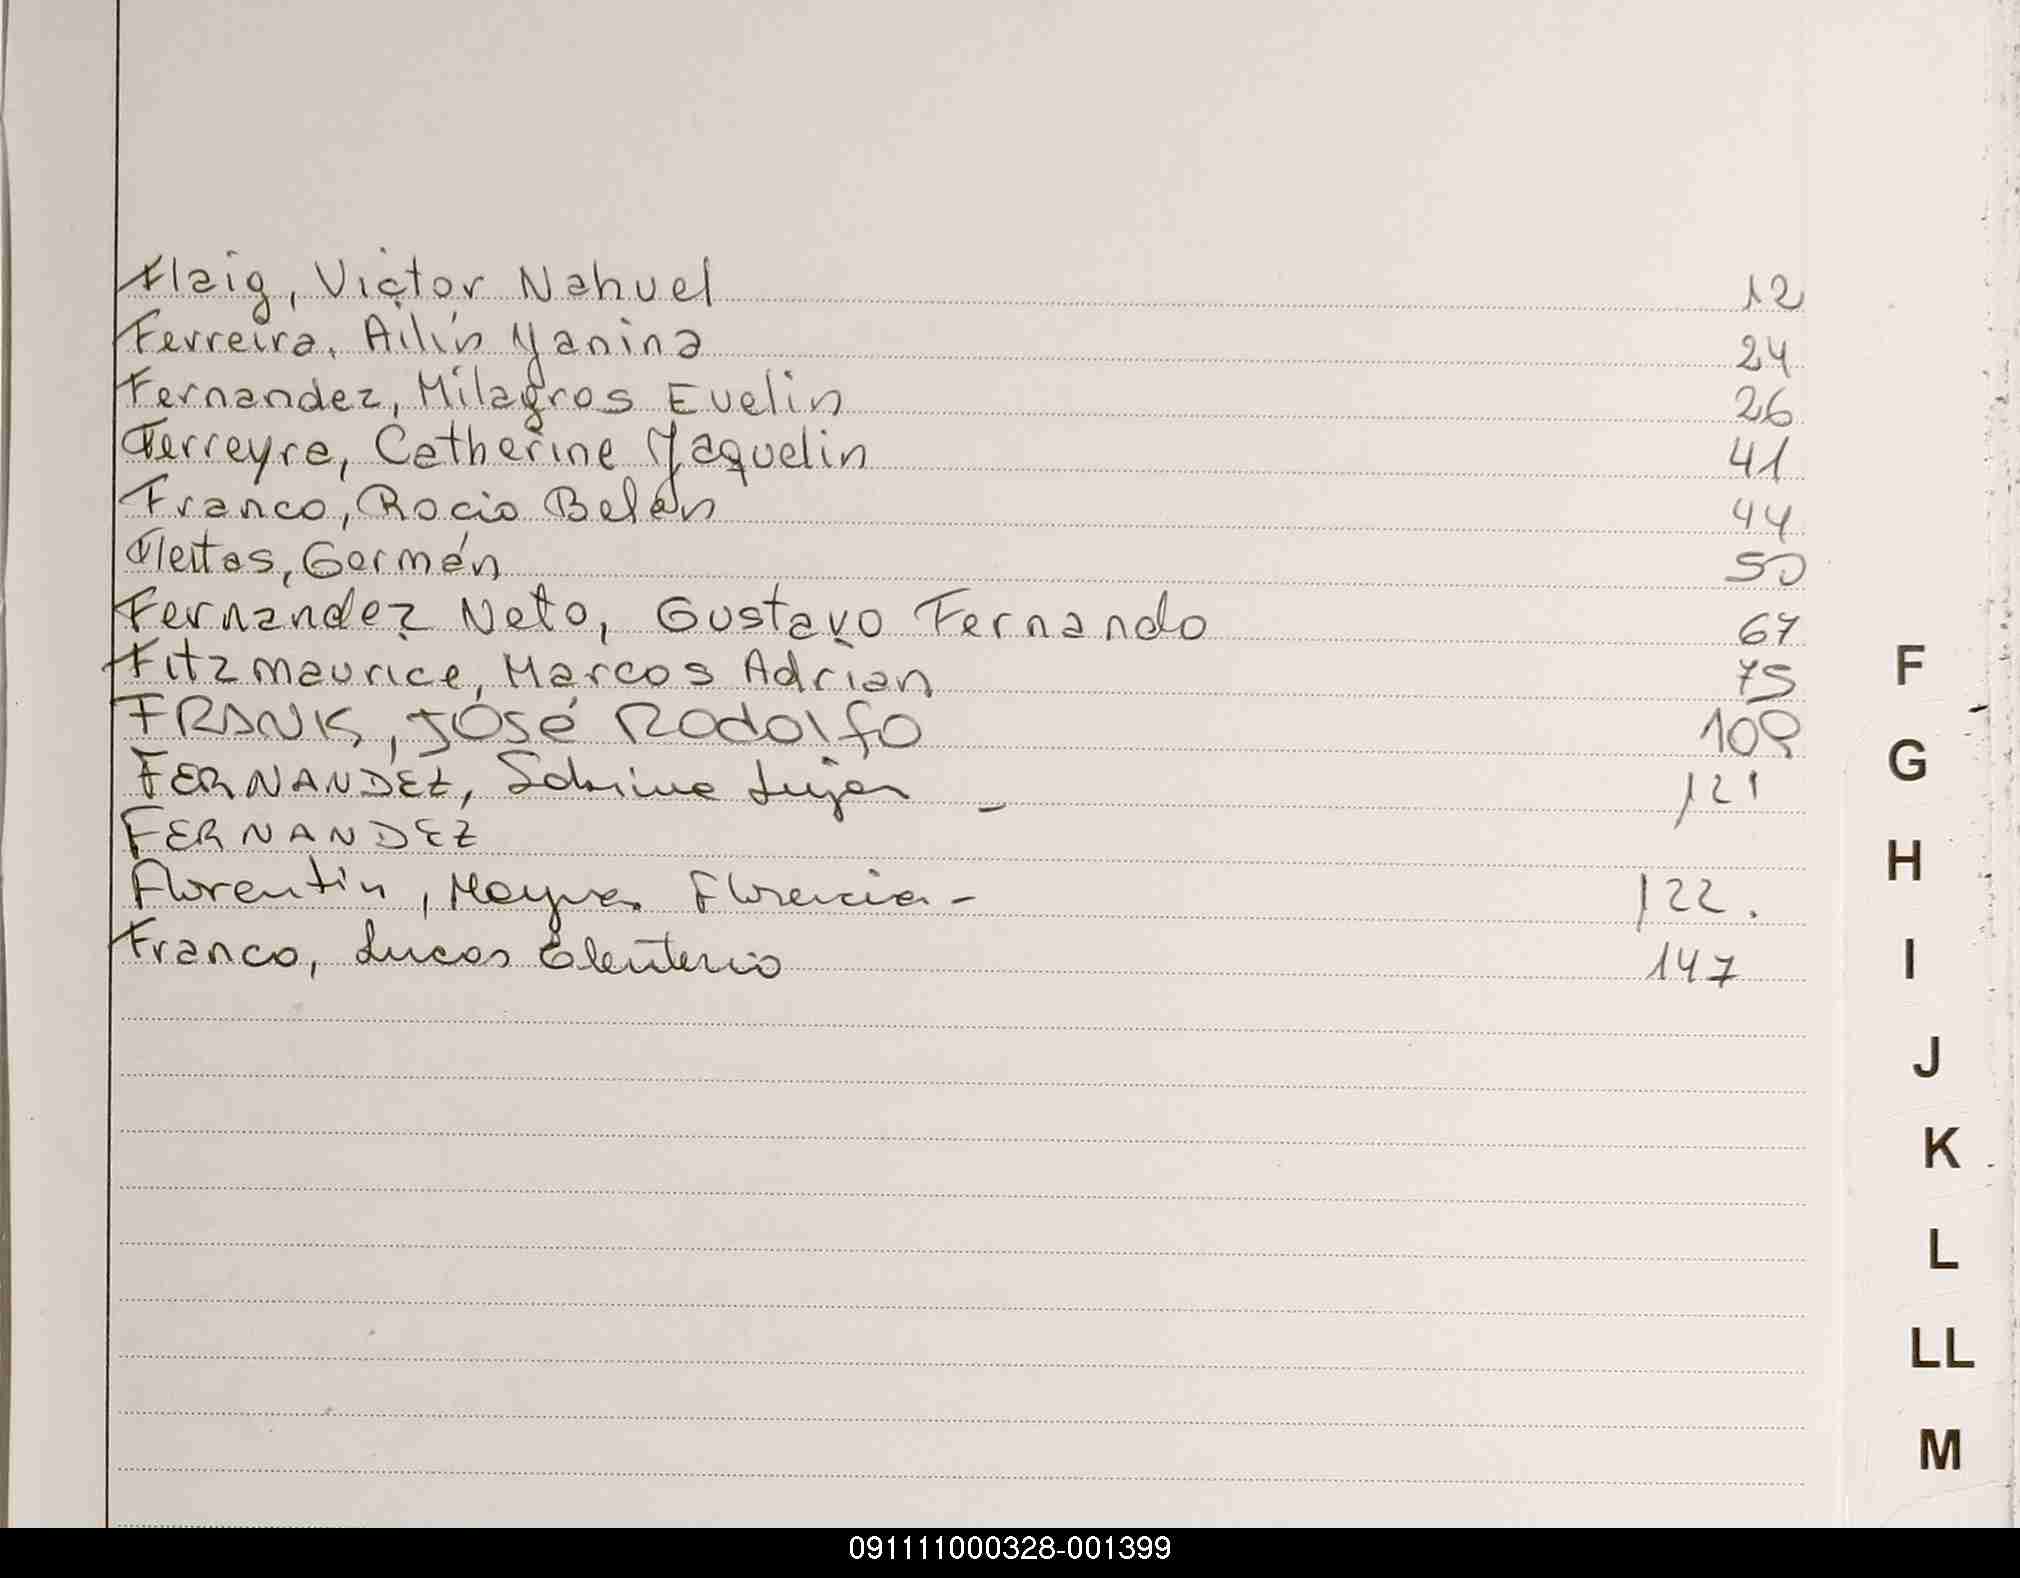 Flaig, Victor Nahuel 12
Ferreira, Ailín Yanina 24
Fernandez, Milagros Evelin 26
Ferreyra, Catherine Yaquelin 41
Franco, Rocio Belén 44
Fleitas, Germán 50
Fernandez Neto, Gustavo Fernando 67
Fitzmaurice, Marcos Adrian 75
FRANK, José Rodolfo 109
FERNANDEZ, Sabrina Lujan - 121
FERNANDEZ
Florentin, Mayra Florencia - 122.
Franco, Lucas Eleuterio 147
F
G
H
I
J
K
L
LL
M
091111000328-001399